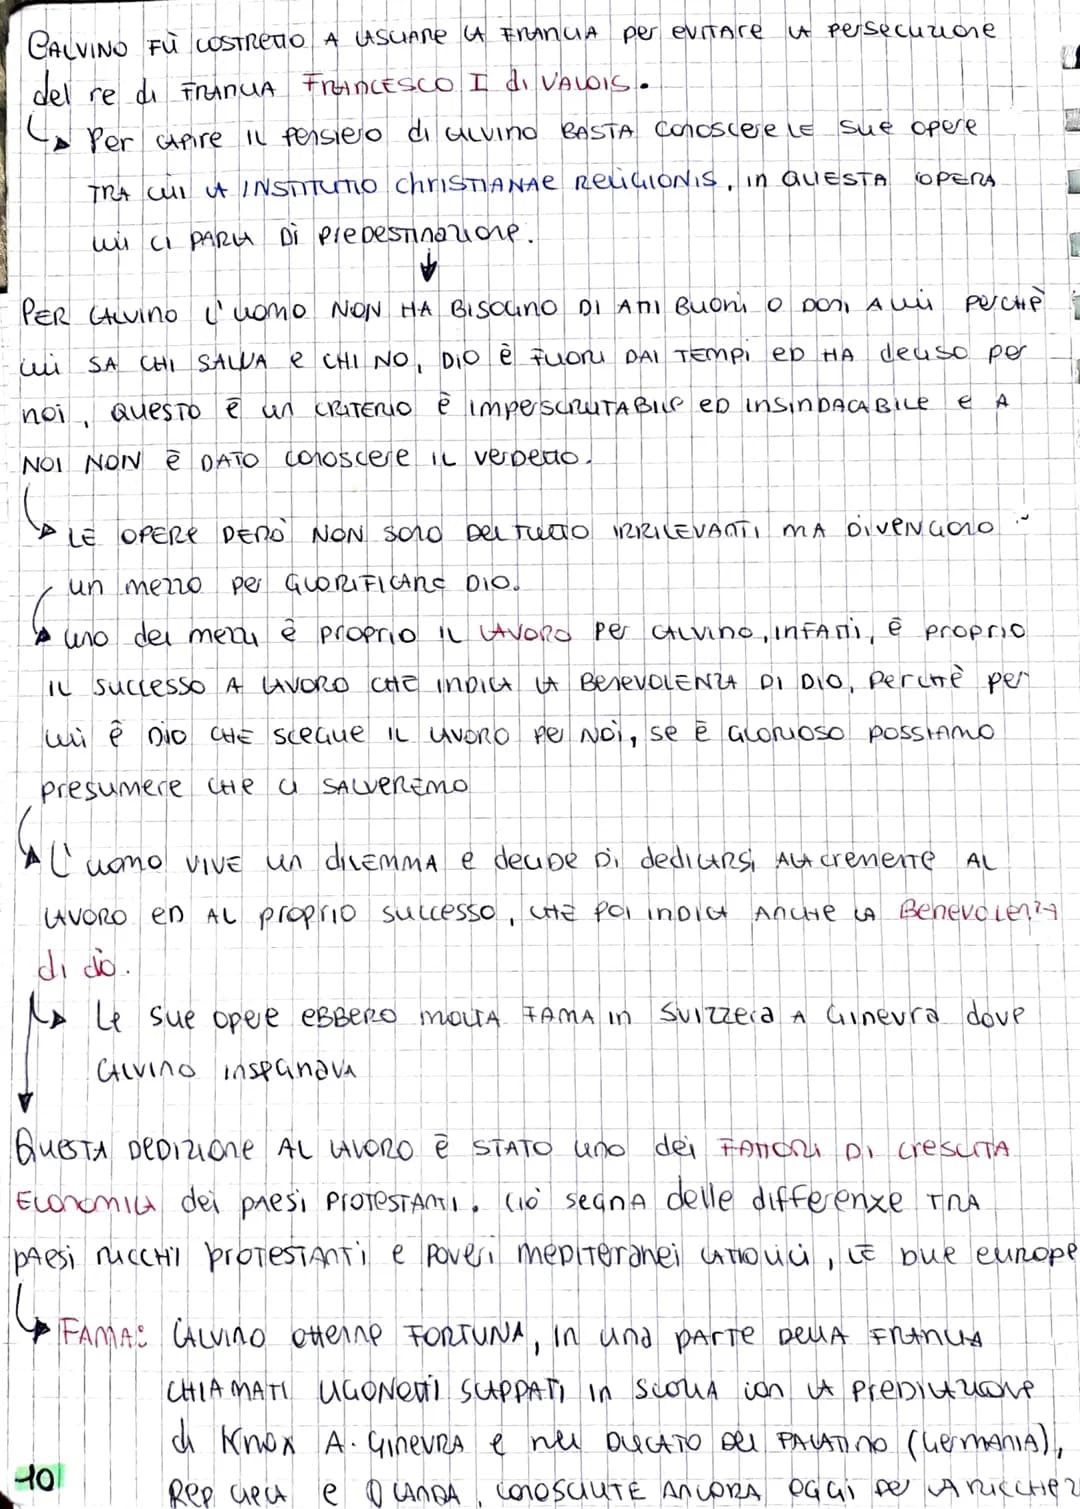 CALVINO FÙ COSTRETTO A LASCIARE LA FRANCIA per evitare LA persecuzione
del re di FRANCIA FRANCESCO I di VALOIS.
Per capire il pensiero di Calvino BASTA conoscere LE sue opere
TRA cui LA INSTITUTIO christianae religionis, in questa OPERA
lui ci PARLA Di predestinazione.
PER CALVINO l'uomo NON HA BISOGNO DI ATTI Buoni o DONI A lui perchè
lui SA CHI SALVA e CHI NO, DIO è FUORI DAI TEMPI ED HA deciso per
noi, QUESTO è un CRITERIO è IMPERSCRUTABILE ED INSINDACABILE e A
NOI NON è DATO conoscere IL verdetto.
LE OPERE PERÒ NON SONO DEL TUTTO IRRILEVANTI MA DIVENGONO
un mezzo per GLORIFICARE DIO.
uno dei mezzi è proprio IL LAVORO per CALVINO, INFATTI, è proprio
IL successo A LAVORO CHE INDICA LA BENEVOLENZA DI DIO, perchè per
lui è DIO CHE SCEGLIE IL LAVORO PE NOI, se è GLORIOSO POSSIAMO
presumere CHE CI SALVEREMO
L'uomo VIVE un DILEMMA e decide Di dedicarsi ALACREMENTE AL
LAVORO ED AL proprio successo, CHE POI INDICA ANCHE LA Benevolenza
di dio.
Le sue opere EBBERO MOLTA FAMA in Svizzera A Ginevra dove
CALVINO insegnava
QUESTA DEDIZIONE AL LAVORO è STATO uno dei FATTORI DI CRESCITA
ECONOMICA dei paesi PROTESTANTI. Ciò segna delle differenze TRA
paesi ricchi protestanti e poveri mediteranei cattolici, LE DUE europe
FAMA: CALVINO ottenne FORTUNA, in una PARTE DELLA FRANCIA
CHIAMATI UGONOTTI SCAPPATI in SCOZIA con LA predicazione
di Knox A. GINEVRA e nel DUCATO DEL PALATINO (Germania),
Rep ceca e OLANDA, CONOSCIUTE ANCORA OGGI per LA
10